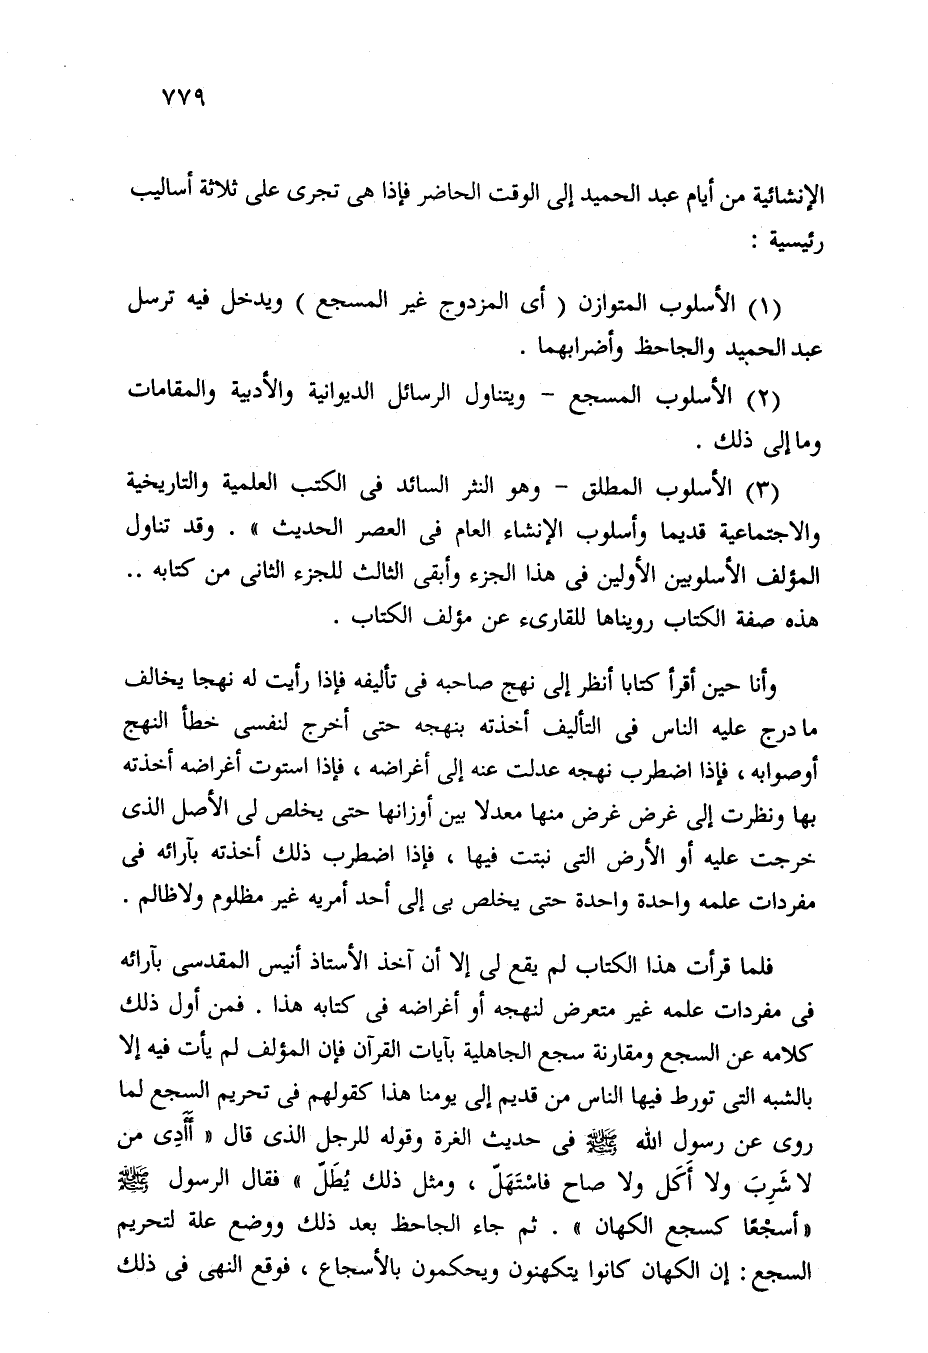 ٧٧٩
الإنشائية من أيام عبد الحميد إلى الوقت الحاضر فإذا هى تجرى على ثلاثة أساليب
رئيسية :
(١) الأسلوب المتوازن ( أى المزدوج غير المسجع ) ويدخل فيه ترسل
عبد الحميد والجاحظ وأضرابهما .
(٢) الأسلوب المسجع – ويتناول الرسائل الديوانية والأدبية والمقامات
وما إلى ذلك .
(٣) الأسلوب المطلق – وهو النثر السائد فى الكتب العلمية والتاريخية
والاجتماعية قديما وأسلوب الإنشاء العام فى العصر الحديث » . وقد تناول
المؤلف الأسلوبين الأولين فى هذا الجزء وأبقى الثالث للجزء الثانى من كتابه ..
هذه صفة الكتاب رويناها للقارىء عن مؤلف الكتاب .
وأنا حين أقرأ كتابا أنظر إلى نهج صاحبه فى تأليفه فإذا رأيت له نهجا يخالف
ما درج عليه الناس فى التأليف أخذته بنهجه حتى أخرج لنفسى خطأ النهج
أوصوابه ، فإذا اضطرب نهجه عدلت عنه إلى أغراضه ، فإذا استوت أغراضه أخذته
بها ونظرت إلى غرض غرض منها معدلا بين أوزانها حتى يخلص لى الأصل الذى
خرجت عليه أو الأرض التى نبتت فيها ، فإذا اضطرب ذلك أخذته بآرائه فى
مفردات علمه واحدة واحدة حتى يخلص بى إلى أحد أمريه غير مظلوم ولاظالم .
فلما قرأت هذا الكتاب لم يقع لى إلا أن آخذ الأستاذ أنيس المقدسى بآرائه
فى مفردات علمه غير متعرض لنهجه أو أغراضه فى كتابه هذا . فمن أول ذلك
كلامه عن السجع ومقارنة سجع الجاهلية بآيات القرآن فإن المؤلف لم يأت فيه إلا
بالشبه التى تورط فيها الناس من قديم إلى يومنا هذا كقولهم فى تحريم السجع لما
روى عن رسول الله ﷺ فى حديث الغرة وقوله للرجل الذى قال « أَأَدِى من
لا شَرِبَ ولا أَكَل ولا صاح فاسْتَهَلّ ، ومثل ذلك يُطَلّ » فقال الرسول ﷺ
« أسجْعًا كسجع الكهان » . ثم جاء الجاحظ بعد ذلك ووضع علة لتحريم
السجع : إن الكهان كانوا يتكهنون ويحكمون بالأسجاع ، فوقع النهى فى ذلك